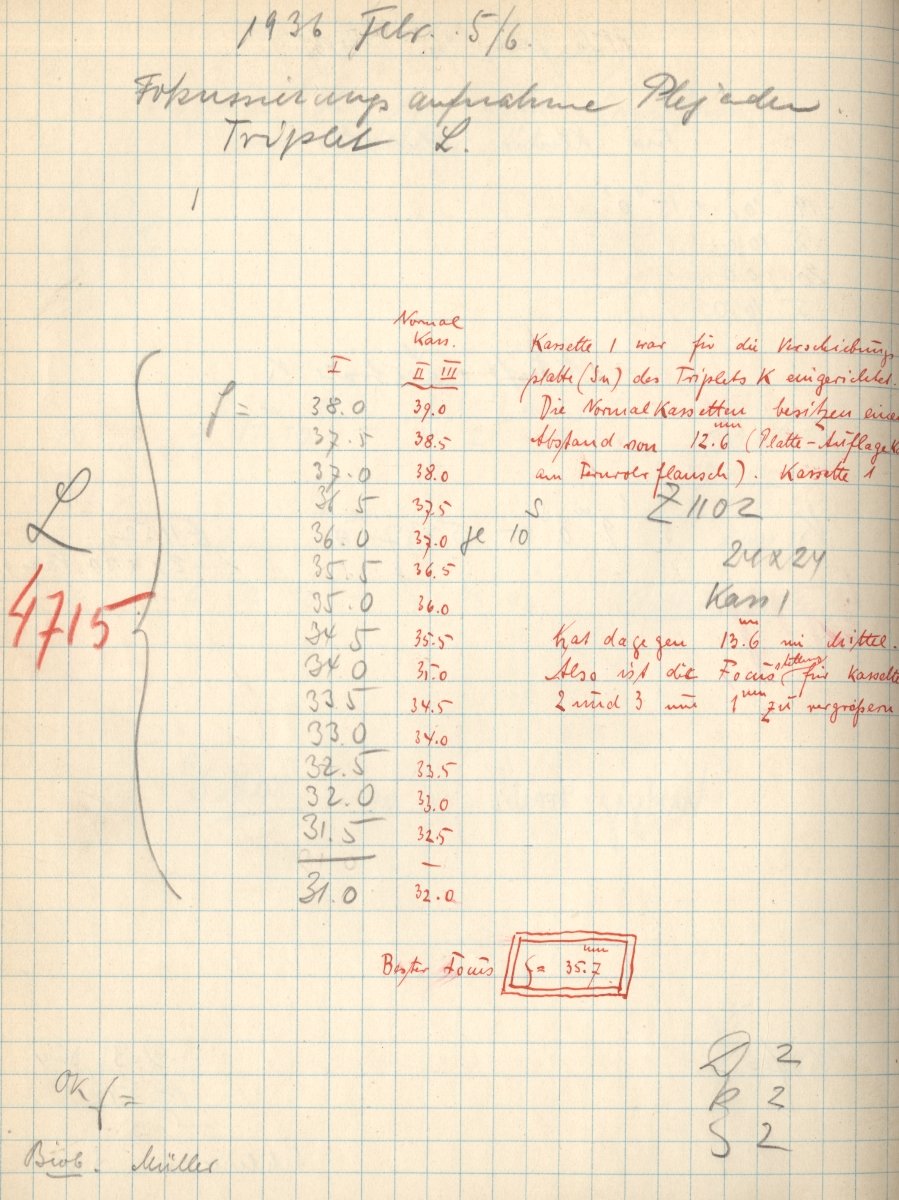 1936 Febr. 5/6.
Fokussierungsaufnahme Plejaden.
Triplet L.
1
Normal
Kass.
I II III
f =
38.0 39.0
37.5 38.5
37.0 38.0
36.5 37.5
36.0 37.0 je 10 s
35.5 36.5
35.0 36.0
34.5 35.5
34.0 35.0
33.5 34.5
33.0 34.0
32.5 33.5
32.0 33.0
31.5 32.5
—
31.0 32.0
L
4715
Kassette 1 war für die Verschiebungs
platte (Sn) des Triplets K eingerichtet.
Die Normalkassetten besitzen einen
Abstand von 12.6 mm (Platte-Auflage
am Fernrohrflansch). Kassette 1
Z 1102
24x24
Kass 1
hat dagegen 13.6 mm im Mittel.
Also ist die Focusstellung für Kassette
2 und 3 um 1 mm zu vergrößern
Bester Focus f = 35.7 mm
D 2
R 2
S 2
OK f =
Beob. Müller